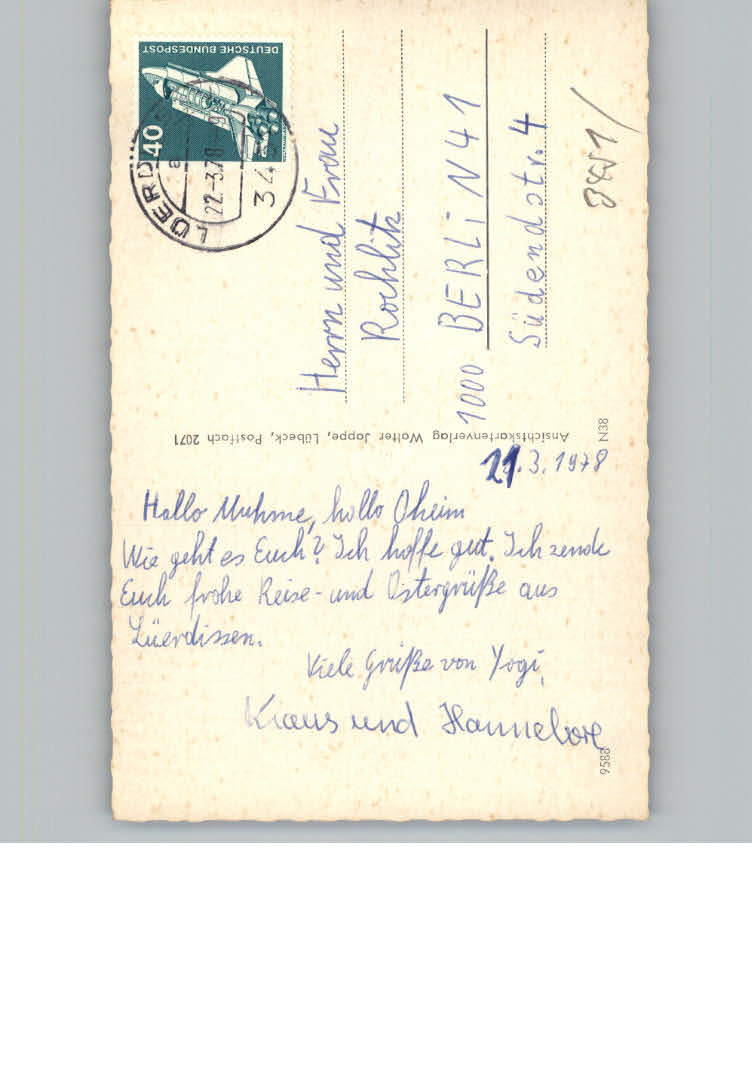 DEUTSCHE BUNDESPOST
40
LÜERD
a
22.-3.78
34
Herrn und Frau
Rochlitz
1000 BERLIN 41
Südendstr. 4
3451/
Ansichtskartenverlag Walter Jappe, Lübeck, Postfach 2071
N38
21.3.1978
Hallo Muhme, hallo Oheim
Wie geht es Euch? Ich hoffe gut. Ich sende
Euch frohe Reise- und Ostergrüße aus
Lüerdissen.
Viele Grüße von Yogi,
Klaus und Hannelore
9588